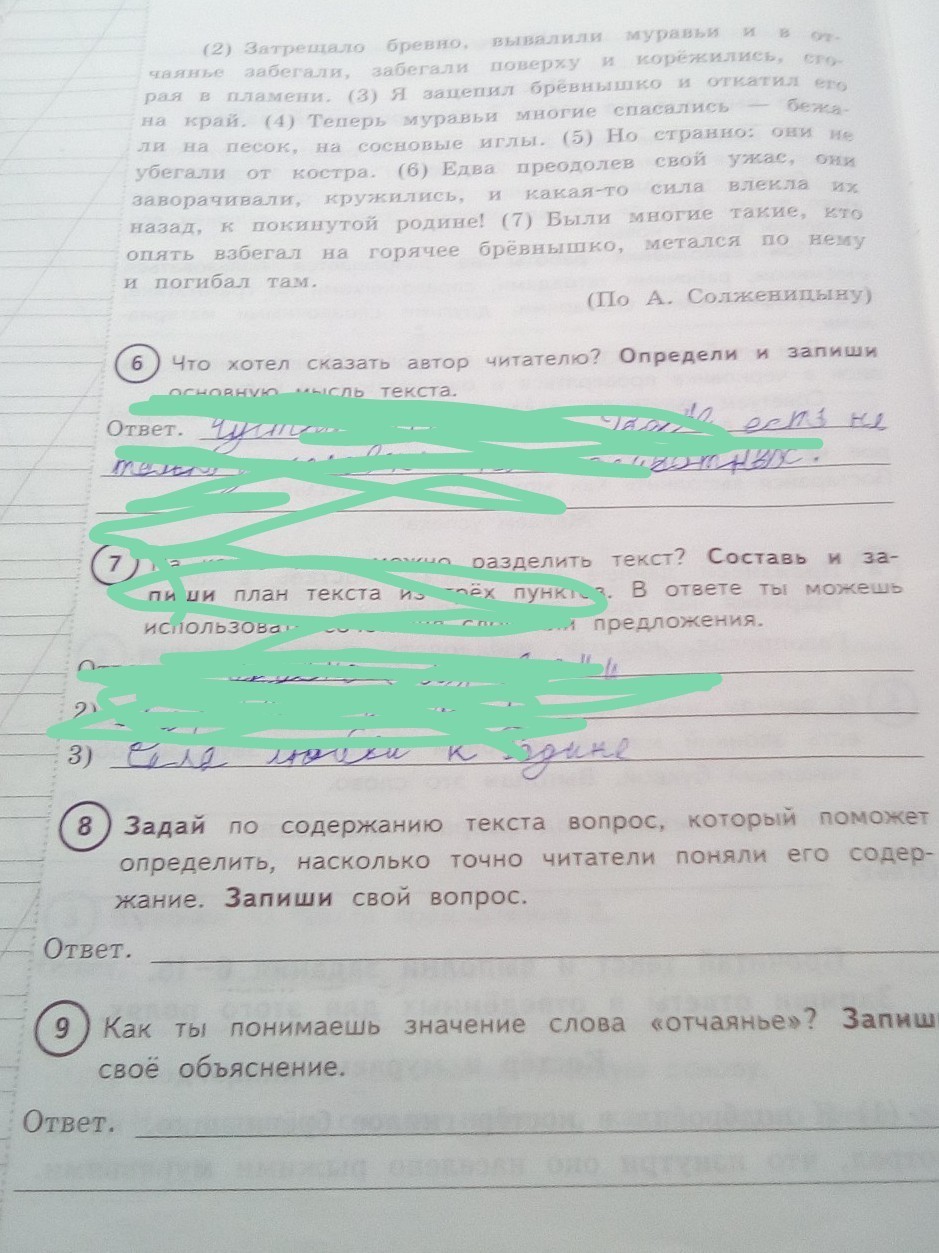 (2) Затрещало бревно, вывалили муравьи и в от-
чаянье забегали, забегали поверху и корёжились, сго-
рая в пламени. (3) Я зацепил брёвнышко и откатил его
на край. (4) Теперь муравьи многие спасались — бежа-
ли на песок, на сосновые иглы. (5) Но странно: они не
убегали от костра. (6) Едва преодолев свой ужас, они
заворачивали, кружились, и какая-то сила влекла их
назад, к покинутой родине! (7) Были многие такие, кто
опять взбегал на горячее брёвнышко, метался по нему
и погибал там.
(По А. Солженицыну)
6 Что хотел сказать автор читателю? Определи и запиши
основную мысль текста.
Ответ. есть не
7 можно разделить текст? Составь и за-
пиши план текста из трёх пунктов. В ответе ты можешь
предложения.
2)
3) Сила любви к Родине
8 Задай по содержанию текста вопрос, который поможет
определить, насколько точно читатели поняли его содер-
жание. Запиши свой вопрос.
Ответ.
9 Как ты понимаешь значение слова «отчаянье»? Запиши
своё объяснение.
Ответ.